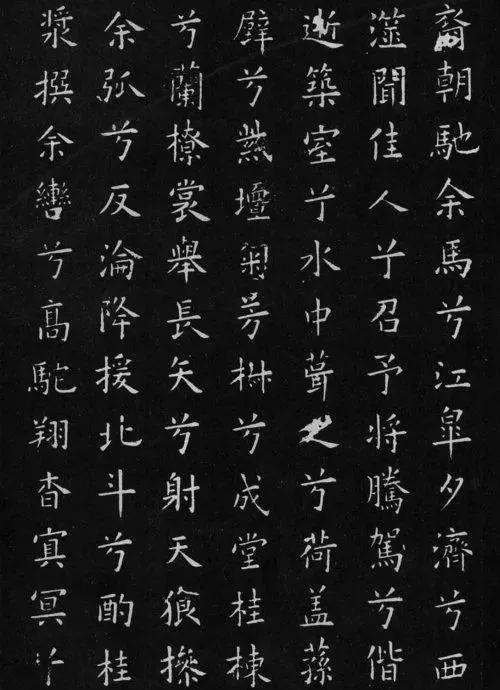 裔朝馳余馬兮江皐夕濟兮西
澨聞佳人兮召予將騰駕兮偕
逝築室兮水中葺之兮荷盖蓀
壁兮紫壇匊芳椒兮成堂桂棟
兮蘭橑裳舉長矢兮射天狼操
余弧兮反淪降援北斗兮酌桂
漿撰余轡兮髙駝翔杳冥冥兮